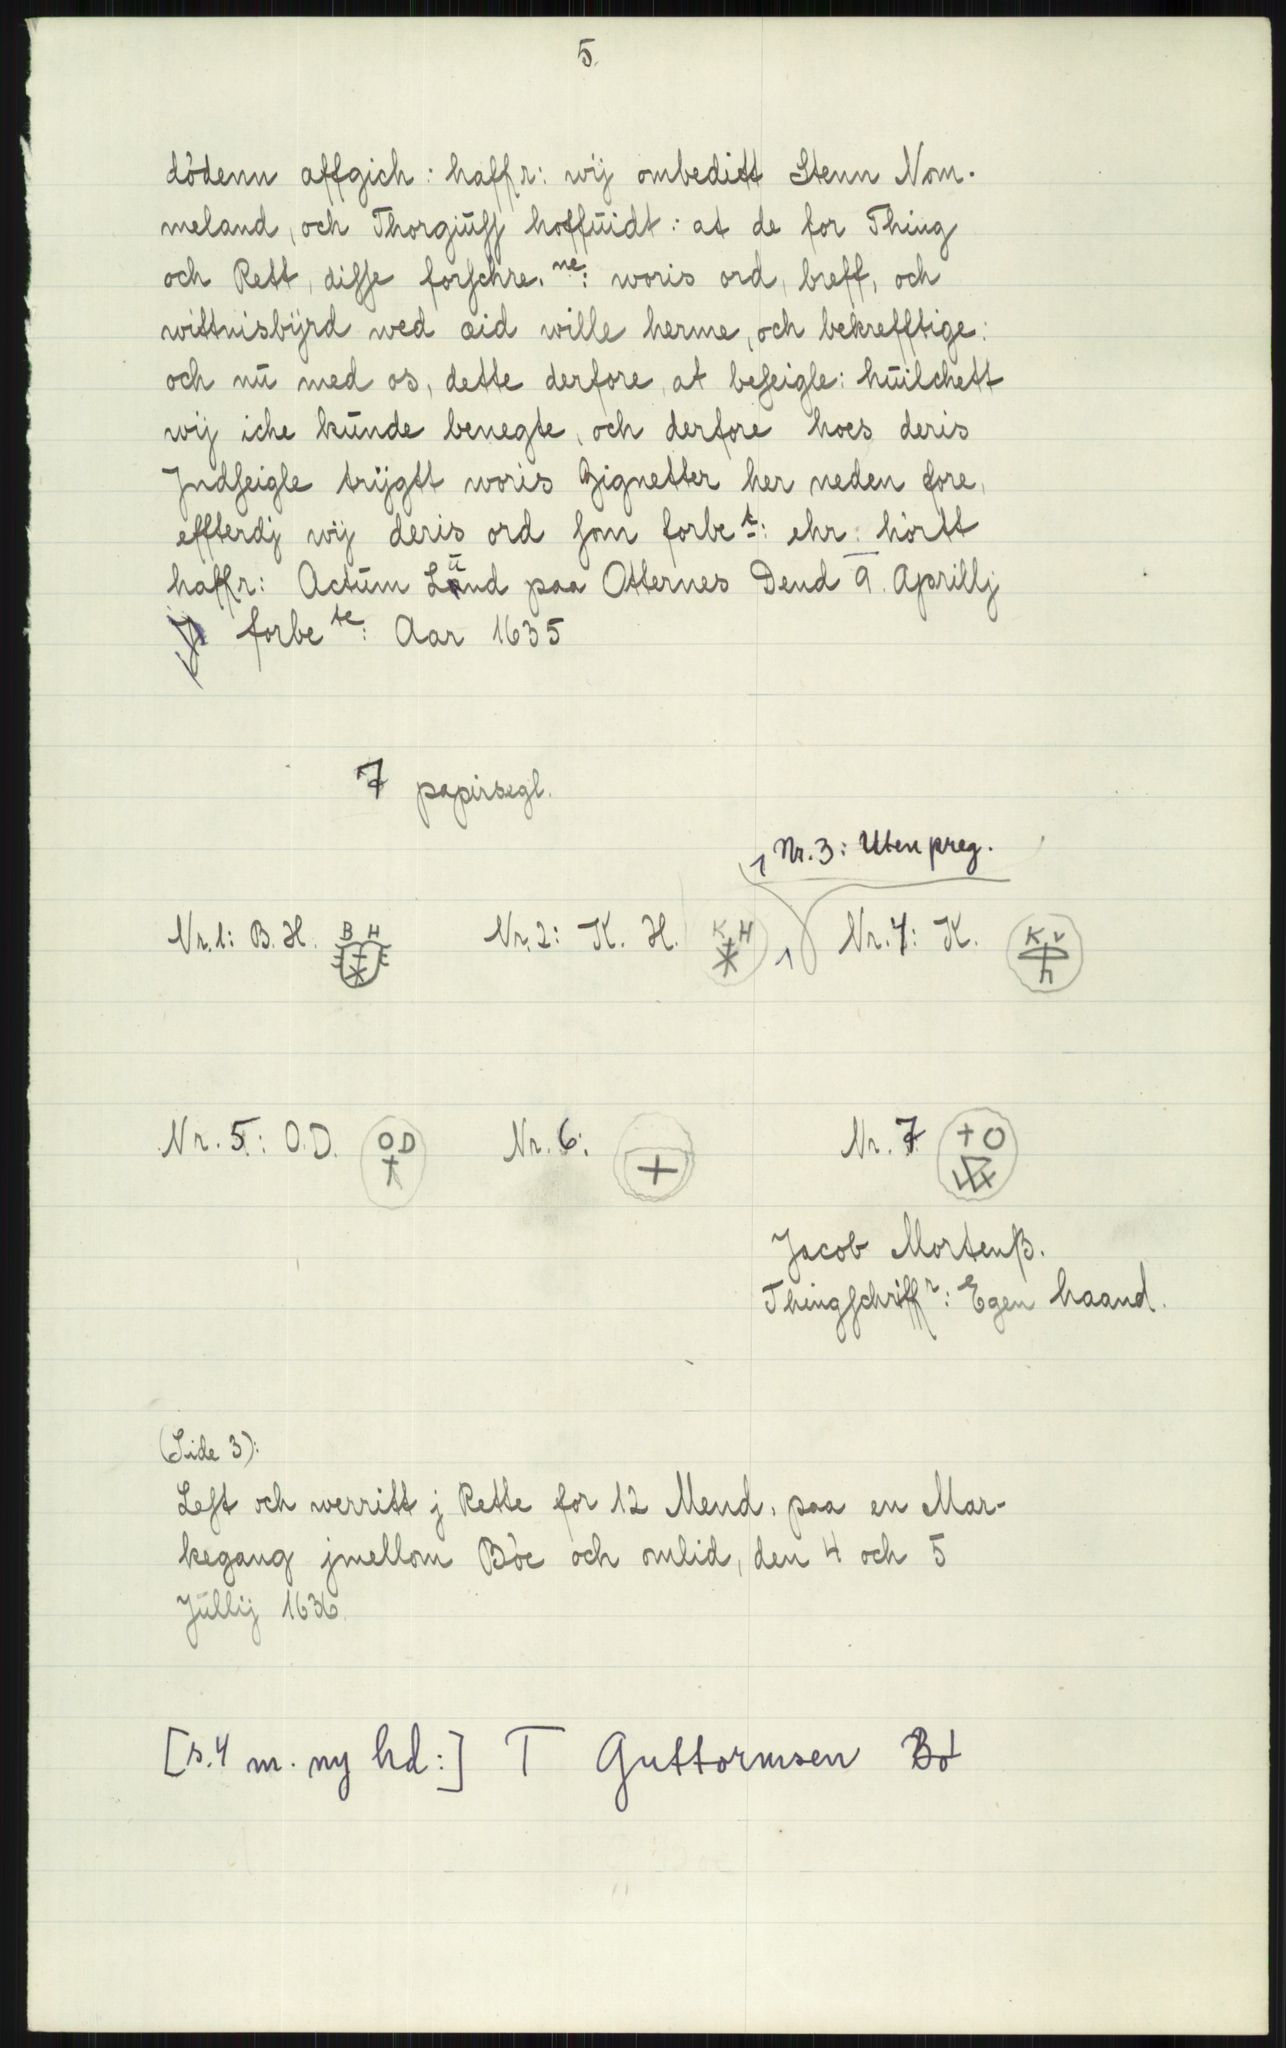 5.
dödenn affgich: haffr: wij ombeditt Stenn Nom-
meland, och Thorgiuff hoffuidt: at de for Thing
och Rett, disse forschre.ne: woris ord, breff, och
wittnisbÿrd wed æid wille herme, och bekrefftige:
och nū med os, dette derfore, at beseigle: hūilchett
wij iche kūnde benegte, och derfore hoes deris
Jndseigle trÿgtt woris Zignetter her neden fore,
effterdj wij deris ord som forbet: ehr: hörtt
haffr: Actūm Lūnd paa Otternes Dend 9. Aprillj
forbete: Aar 1635
7 papirsegl.
1 Nr. 3: Uten preg.
Nr. 1: B. H. B H Nr. 2: K. H. K H 1 Nr. 4: K. K v h
Nr. 5: O.D. O D Nr. 6: Nr. 7 + O
Jacob Mortenß.
Thingschriffr: Egen haand.
(Side 3):
Lest och werritt j Rette for 12 Mend, paa en Mar-
kegang jmellom Böe och omlid, den 4 och 5
Jūllij 1636.
[s. 4 m. ny hd:] T Guttormsen Bö